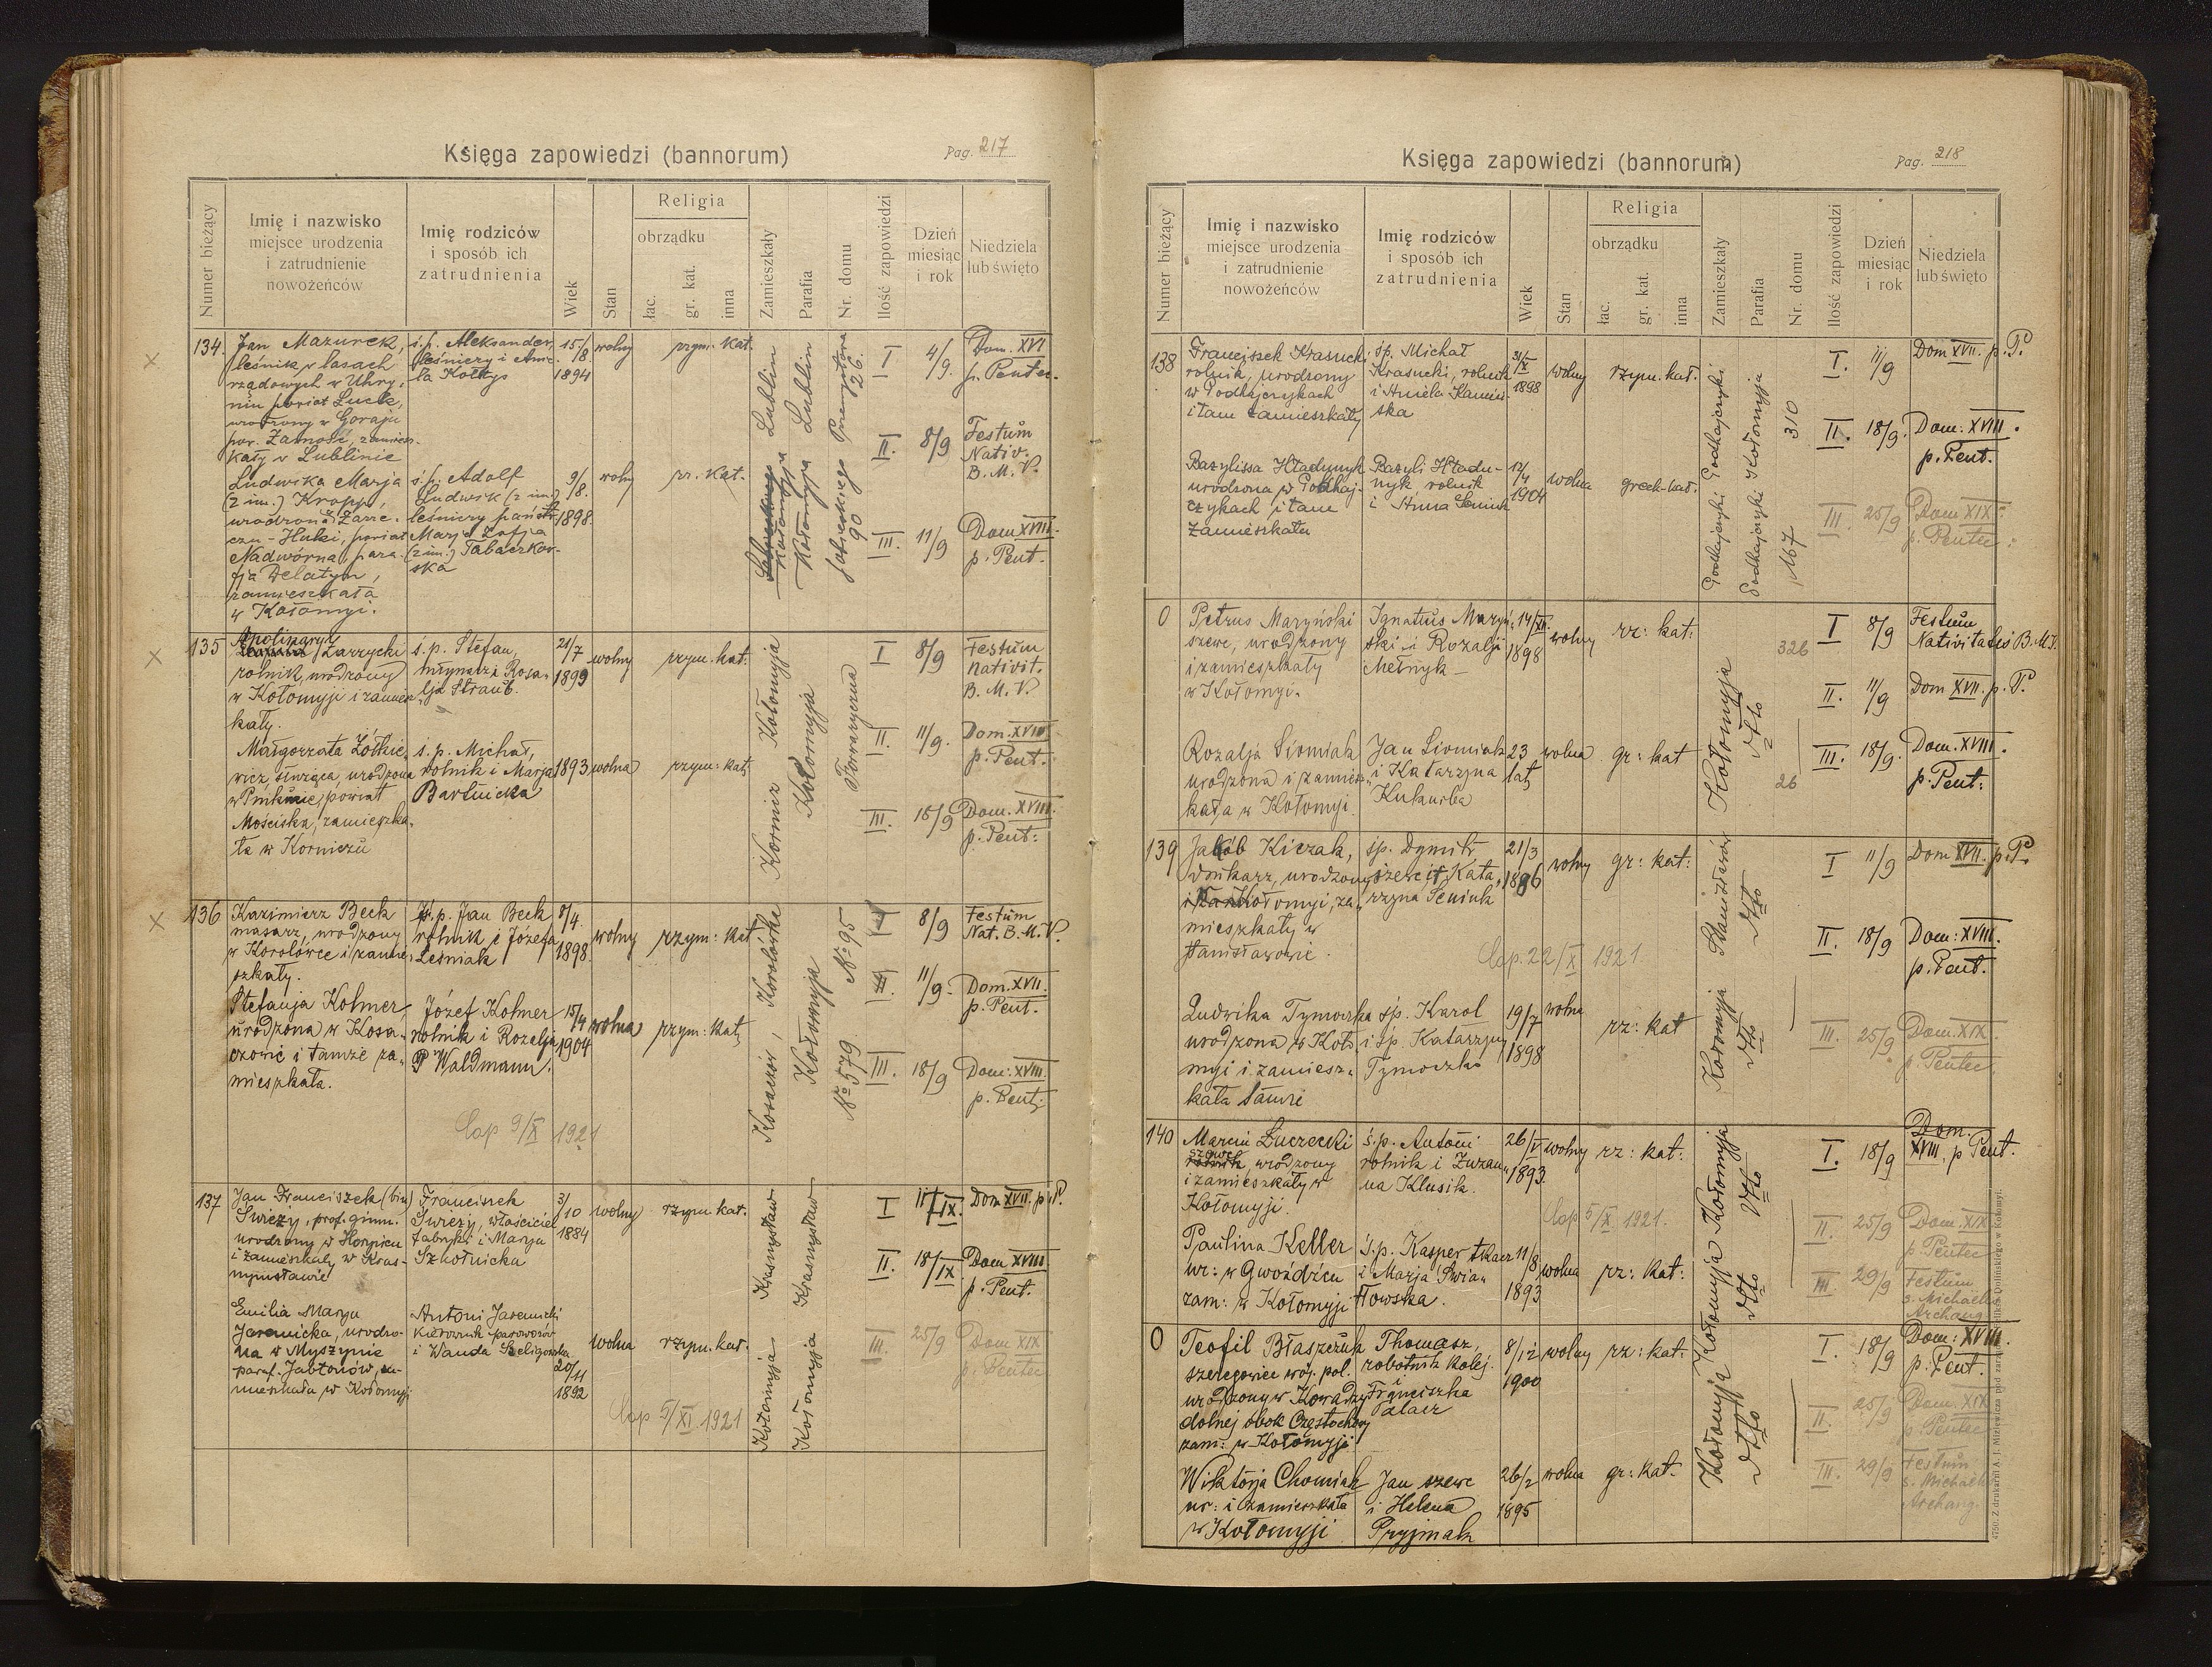 Księga zapowiedzi (bannorum)
Pag. 217
Numer bieżący
Imię i nazwisko
miejsce urodzenia
i zatrudnienie
nowożeńców
Imię rodziców
i sposób ich
zatrudnienia
Wiek
Stan
Religia
obrządku
łac.
gr. kat.
inna
Zamieszkały
Parafia
Nr. domu
Ilość zapowiedzi
Dzień
miesiąc
i rok
Niedziela
lub święto
134.
Jan Mazurek,
leśnik w lasach
rządowych w Uhry-
niu powiat Łuck,
urodzony w Goraju
pow. Zamość, zamiesz-
kały w Lublinie
ś. p. Aleksander,
leśniczy i Anie-
la Kołtys
15/8
1894
wolny
rzym. kat.
Lublin
Lublin
26.
I
4/9.
Dom. XVI
p. Pentec.
II.
8/9
Festum
Nativ.
B. M. V.
Ludwika Marja
(2 im.) Kropp,
urodzona Zarze-
cze - Huki, powiat
Nadwórna, para-
fja Delatyn,
zamieszkała
w Kołomyi.
ś. p. Adolf
Ludwik (2 im.)
leśniczy państw.
Marja Zofja
(2 im.) Tabaczkow-
ska
9/8.
1898.
wolny
rz. kat.
Kołomyja
Kołomyja
Sobieskiego
90
III.
11/9
Dom XVII.
p. Pent.
135
Apolinary
Zarzycki
rolnik, urodzony
w Kołomyji i zamiesz-
kały.
ś. p. Stefan,
młynarz i Roza-
lja Straub.
21/7
1899
wolny
rzym. kat.
Kołomyja
I
8/9
Festum
Nativit.
B. M. V.
II.
11/9.
Dom. XVII
p. Pent.
Małgorzata Żółkie-
wicz służąca, urodzona
w Pnikucie, powiat
Mościska, zamieszka-
ła w Korniczu
ś. p. Michał,
rolnik i Marja
Bartnicka
1893
wolna
rzym: kat.
Kornicz
Kołomyja
Towaryczna
III.
18/9
Dom. XVIII.
p. Pent:
136
Kazimierz Beck
masarz, urodzony
w Korolówce i zamie-
szkały.
ś. p. Jan Beck
rolnik i Józefa
Leśniak
8/4.
1898.
wolny
rzym: kat
Korolówka
Nr 95
I
8/9
Festum
Nat. B. M. V.
II.
11/9.
Dom. XVII.
p. Pent.
Stefanja Kolmer
urodzona w Kosa-
czowie i tamże za-
mieszkała.
Józef Kolmer
rolnik i Rozalja
Waldmann.
15/4
1904
wolna
rzym: kat,
Kosaczów,
Kołomyja
Nr 579
III.
18/9
Dom: XVIII
p. Pent:
Cop 9/X 1921
137
Jan Franciszek (bin)
Świeży, prof. gimn.
urodzony w Horpinu
i zamieszkały w Kras-
nymstawie
Franciszek
Świeży, właściciel
fabryki i Marya
Szkolnicka
3/10
1884
wolny
rzym. kat.
Krasnystaw
Krasnystaw
I
11/IX.
Dom XVII. p. P.
II.
18/IX
Dom XVIII
p. Pent.
Emilia Marya
Jaremicka, urodzo-
na w Myszynie
paraf. Jabłonów, za-
mieszkała w Kołomyji
Antoni Jaremicki
kierownik parowozów
i Wanda Seligowska
20/11
1892
wolna
rzym. kat.
Kołomyja
Kołomyja
III.
25/9
Dom XIX
p. Pentec
Cop 5/XI 1921
Księga zapowiedzi (bannorum)
Pag. 218
Numer bieżący
Imię i nazwisko
miejsce urodzenia
i zatrudnienie
nowożeńców
Imię rodziców
i sposób ich
zatrudnienia
Wiek
Stan
Religia
obrządku
łac.
gr. kat.
inna
Zamieszkały
Parafia
Nr. domu
Ilość zapowiedzi
Dzień
miesiąc
i rok
Niedziela
lub święto
138
Franciszek Krasucki
rolnik, urodzony
w Podhajczykach
i tam zamieszkały
śp. Michał
Krasucki, rolnik
i Aniela Kamień-
ska
31/X
1898
wolny
rzym. kat.
Podhajczyki
Kołomyja
310
I.
11/9
Dom XVII. p. P.
II.
18/9.
Dom: XVIII.
p. Pent.
Bazylissa Hładunyk
urodzona w Podhaj-
czykach i tam
zamieszkała
Bazyli Hładu-
nyk rolnik
i Anna Seniuk
12/4
1904
wolna
greck-kat.
Podhajczyki
Podhajczyki
167
III.
25/9
Dom XIX.
p. Pentec.
0
Petrus Maryński
szewc, urodzony
i zamieszkały
w Kołomyi.
Ignatius Maryń-
ski i Rozalji
Melnyk
14/XII.
1898
wolny
rz: kat:
326
I
8/9
Festum
Nativitatis B. M. V.
II.
11/9
Dom XVII. p. P.
Rozalja Siomiak
urodzona i zamiesz-
kała w Kołomyi.
Jan Siomiak
i Katarzyna
Kukurba
23
lat,
wolna
gr: kat
Kołomyja
dtto
26
III.
18/9.
Dom. XVIII.
p. Pent:
139
Jakób Kiczak,
drukarz, urodzony
Kołomyi, za-
mieszkały w
Stanisławowie.
śp. Dymitr
szewc i Kata-
rzyna Seniuk
21/3
1886
wolny
gr: kat:
Stanisławów
dtto
I
11/9
Dom XVII. p. P.
II.
18/9.
Dom: XVIII.
p. Pent.
Cop. 22/X 1921.
Ludwika Tymoczko
urodzona w Koło-
myi i zamiesz-
kała tamże
śp. Karol
i śp. Katarzyny
Tymoczko
19/7
1898
wolna
rz: kat
Kołomyja
dtto
III.
25/9
Dom. XIX
p. Pentec.
140
Marcin Łuczecki
szewc
rolnik, urodzony
i zamieszkały w
Kołomyji.
ś. p. Antoni
rolnik i Zuzan-
na Klusik.
26/V
1893.
wolny
rz: kat:
Kołomyja
dtto
I.
18/9
Dom.
XVIII. p Pent.
Cop 5/X 1921.
II.
25/9
Dom. XIX
p. Pentec
Paulina Keller
ur: w Gwoźdźcu
zam: w Kołomyji
ś. p. Kasper tkacz
i Marja Świa-
tłowska.
11/8
1893
wolna
rz: kat:
Kołomyja
dtto
III.
29/9
Festum
s. Michaelis
Archang.
0
Teofil Błaszczuk
szeregowiec wój. pol.
urodzony w Kowadzy
dolnej obok Częstochowy
zam: w Kołomyji
Thomasz,
robotnik kolej.
i
Franciszka
Palacz
8/12
1900
wolny
rz: kat:
Kołomyja
I.
18/9
Dom: XVIII.
p. Pent.
II.
25/9
Dom. XIX
p. Pentec
Wiktorja Chomiak
ur: i zamieszkała
w Kołomyji
Jan szewc
i Helena
Pryjmak
26/2
1895
wolna
gr: kat.
Kołomyja
dtto
III.
29/9
Festum
s. Michaelis
Archang.